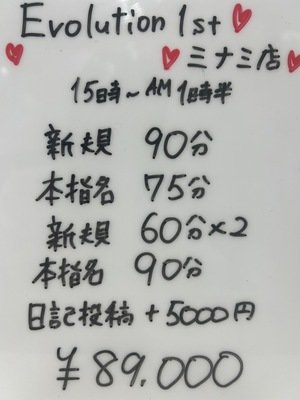 Evolution 1st
ミナミ店
15時〜AM1時半
新規 90分
本指名 75分
新規 60分×2
本指名 90分
日記投稿 + 5000円
¥89.000